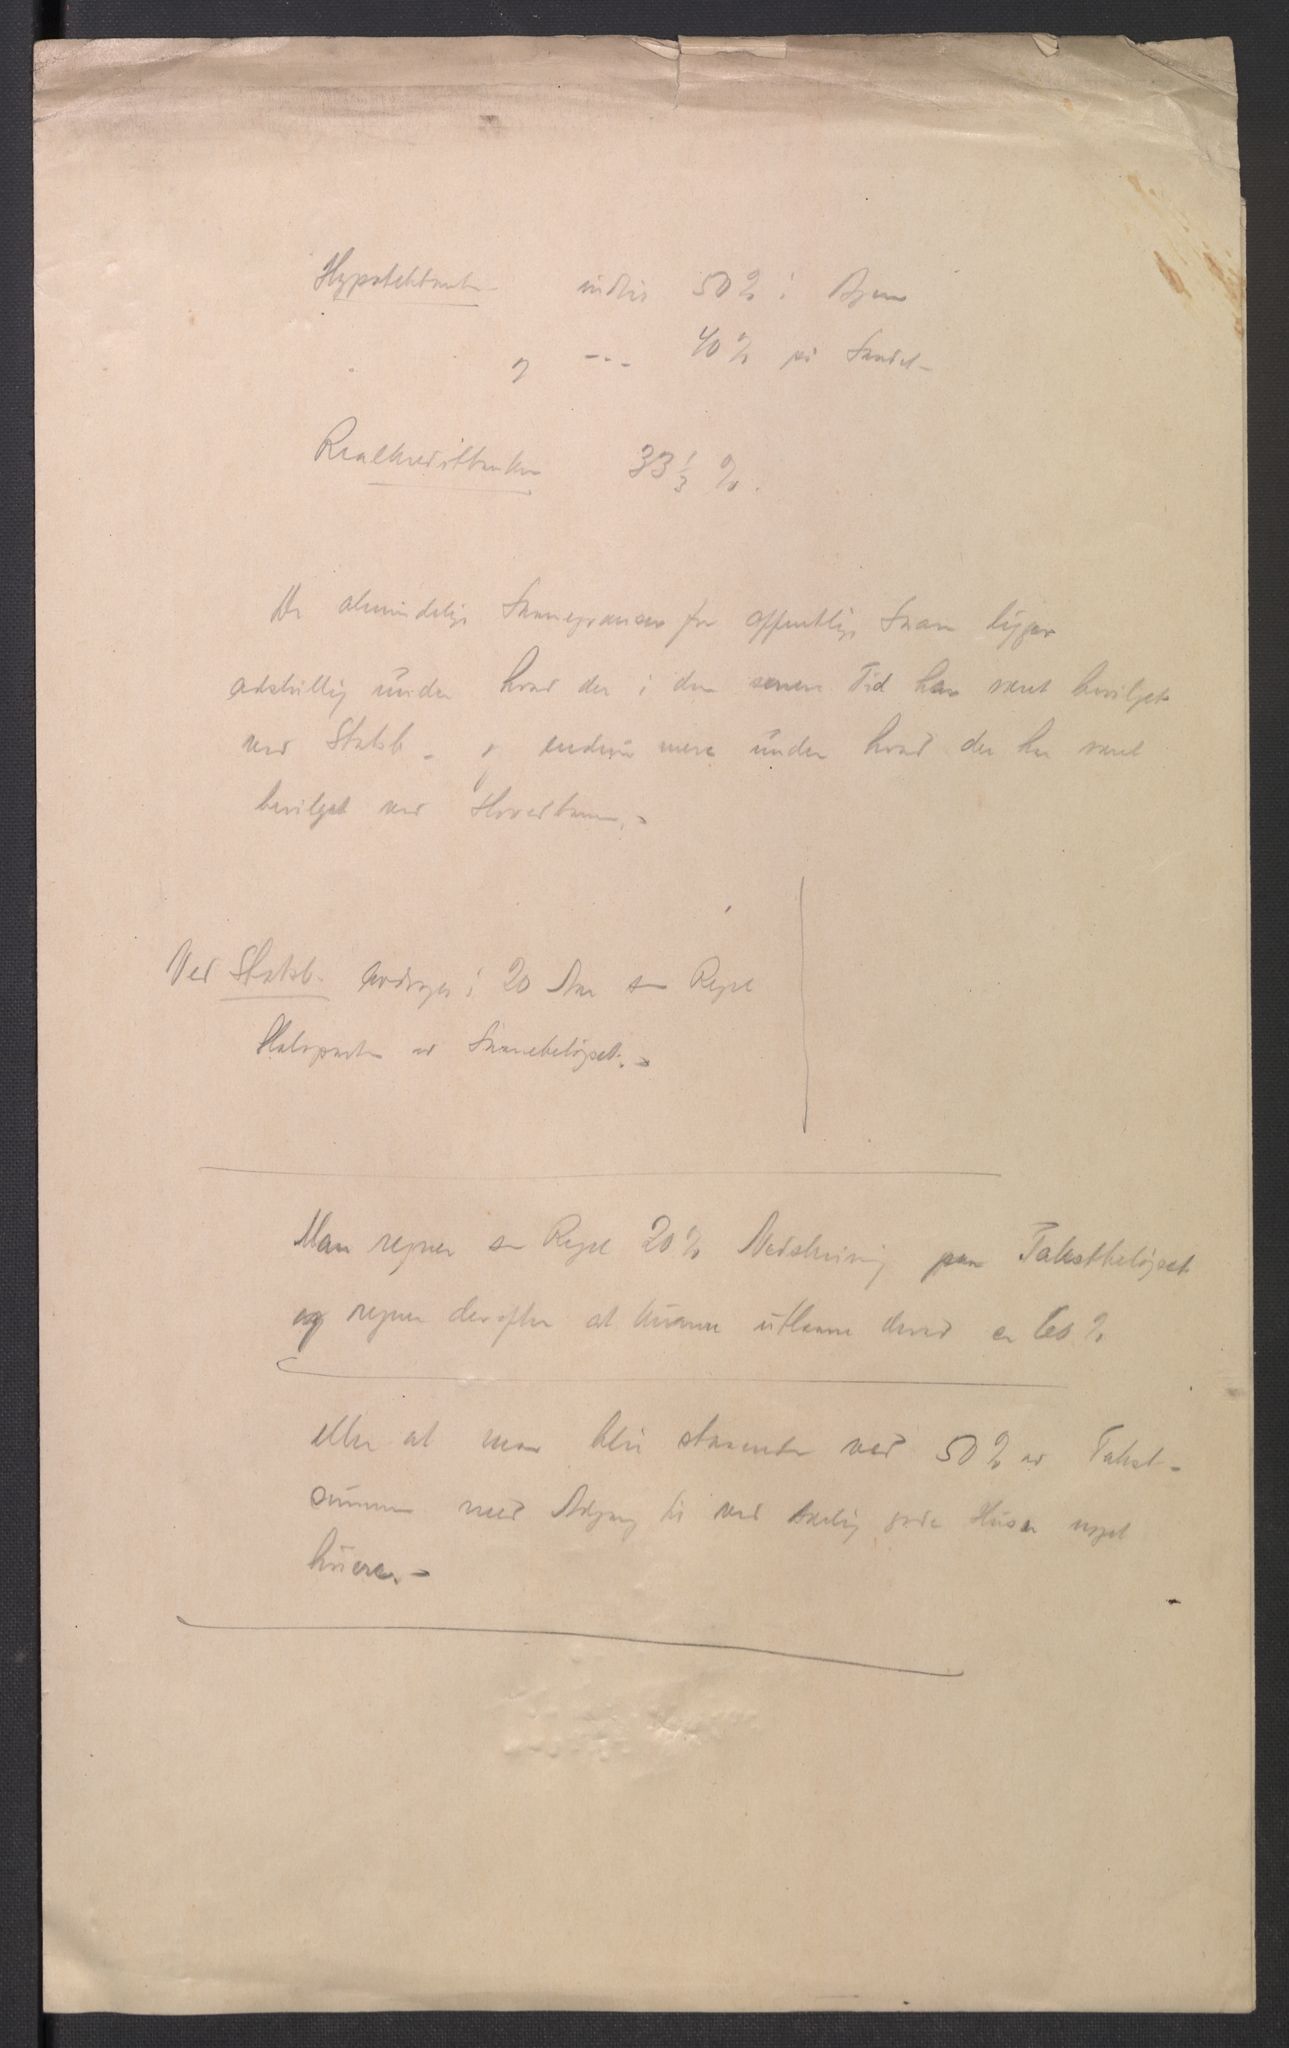 Hypotekbanken indtil 50% i Byene
og -"- 40% på Landet -
Realkreditbanken 33 1/3 %.
De almindelige Laanegrænser for offentlige Laan ligger
adskillig under hvad der i den senere Tid har været bevilget
ved Statsb. - og endnu mere under hvad der har været
bevilget ved Hovedbanen. -
Ved Statsb. i 20 Aar som Regel
Halvparten av Laanebeløpet. -
Man regner som Regel 20% Nedskrivning paa Takstbeløpet
og regner derefter at kunne utlaane derav ca 60%
eller at man blir staaende ved 50% av Takst-
summen med Adgang til ved særlig gode Huse noget
høiere. -